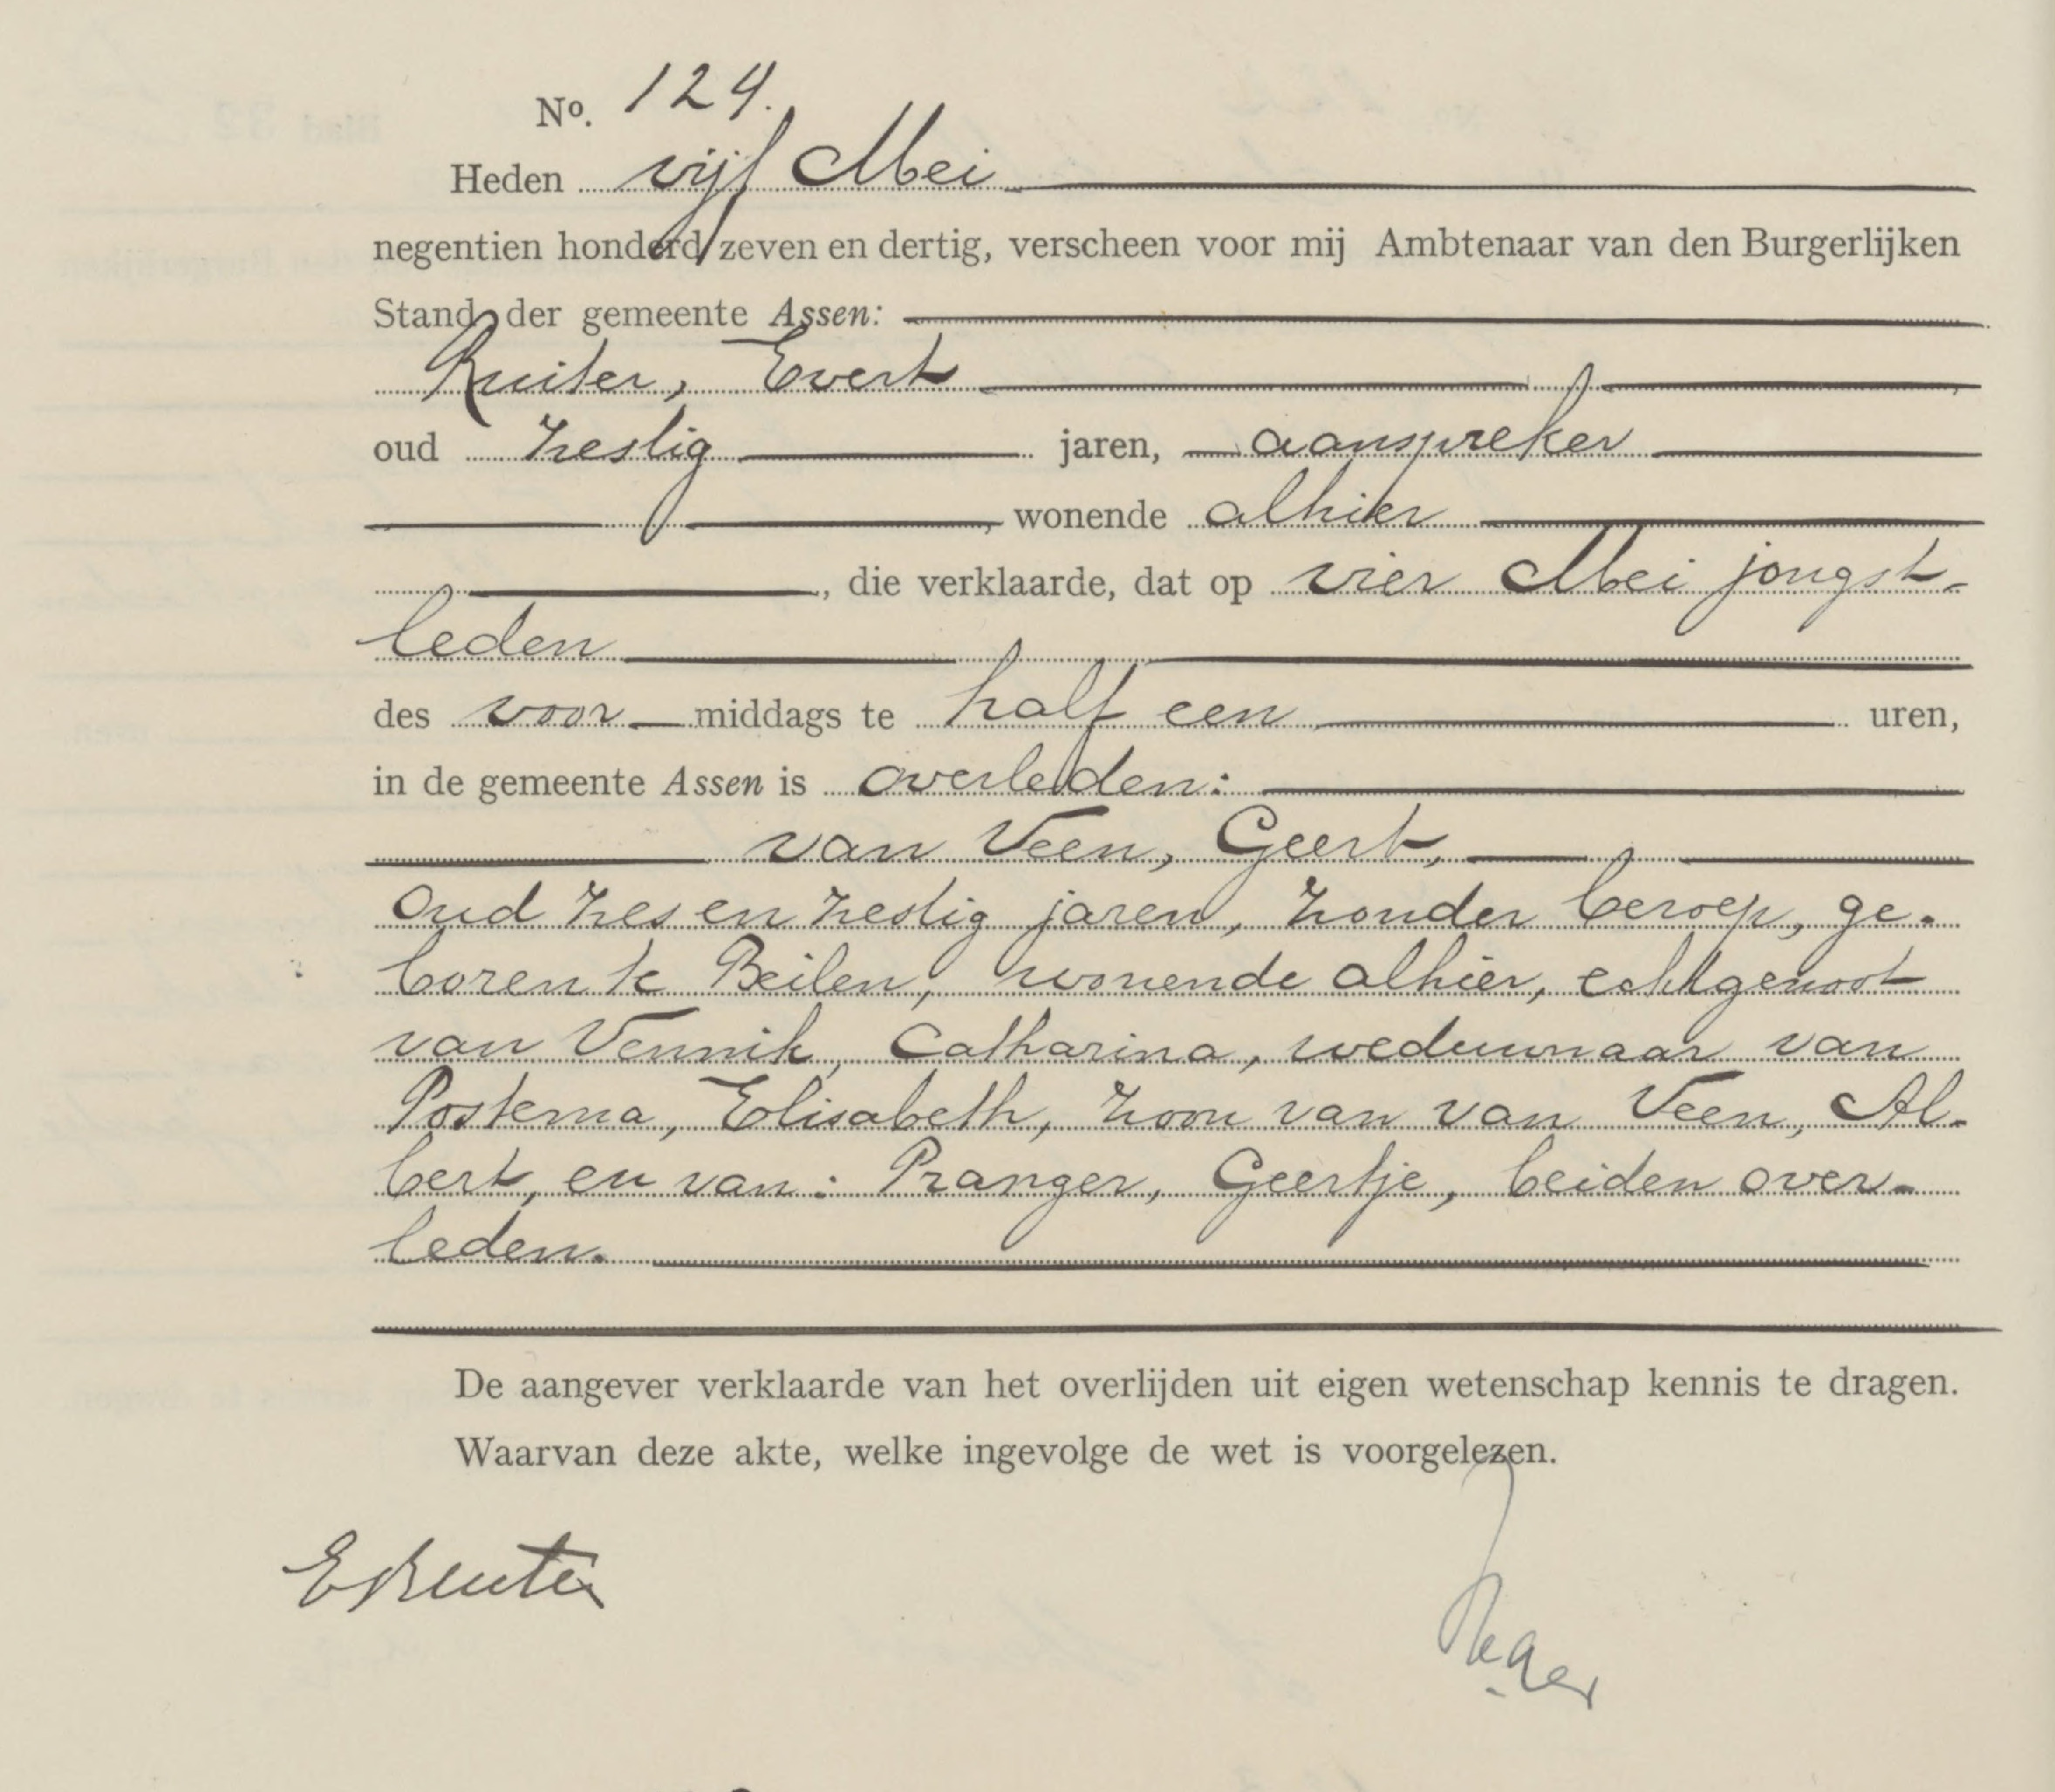 No. 124.
Heden vijf Mei
negentien honderd zeven en dertig, verscheen voor mij Ambtenaar van den Burgerlijken
Stand der gemeente Assen:
Ruiter, Evert
oud zestig jaren, aanspreker
, wonende alhier
, die verklaarde, dat op vier Mei jongst-
leden
des voor middags te half een uren,
in de gemeente Assen is overleden:
van Veen, Geert,
oud zes en zestig jaren, zonder beroep, ge-
boren te Beilen, wonende alhier, echtgenoot
van Vennik, Catharina, weduwnaar van
Postema, Elisabeth, zoon van van Veen, Al-
bert, en van: Pranger, Geertje, beiden over-
leden.
De aangever verklaarde van het overlijden uit eigen wetenschap kennis te dragen.
Waarvan deze akte, welke ingevolge de wet is voorgelezen.
E Ruiter